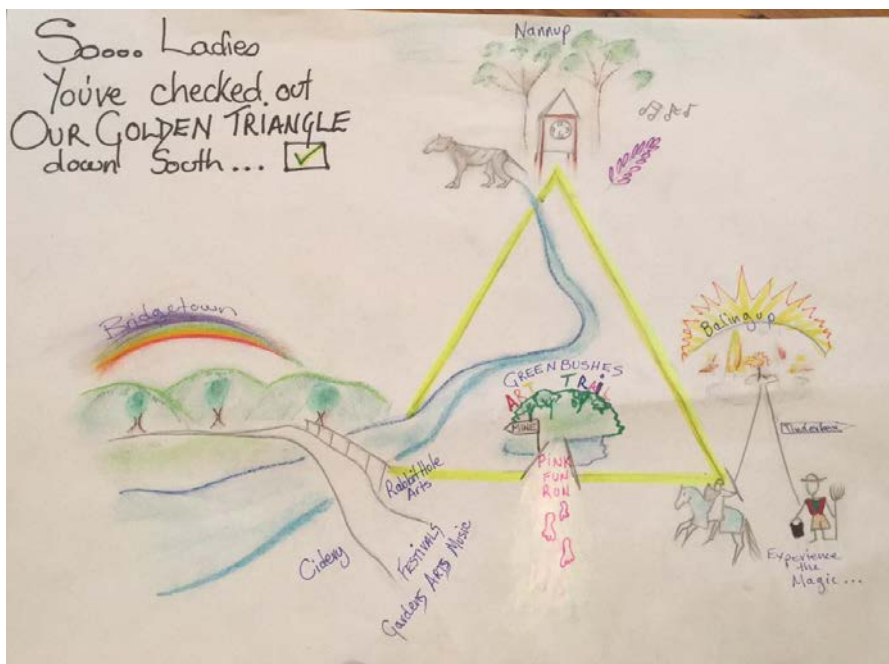 Soooo Ladies
You've checked out
OUR GOLDEN TRIANGLE
down South...
Nannup
Bridgetown
Balingup
GREENBUSHES
ART TRAIL
MINE
Tinderbox
PINK
FUN
RUN
Rabbit Hole
Arts
Cidery
FESTIVALS
Gardens ARTS Music
Experience
the
Magic...